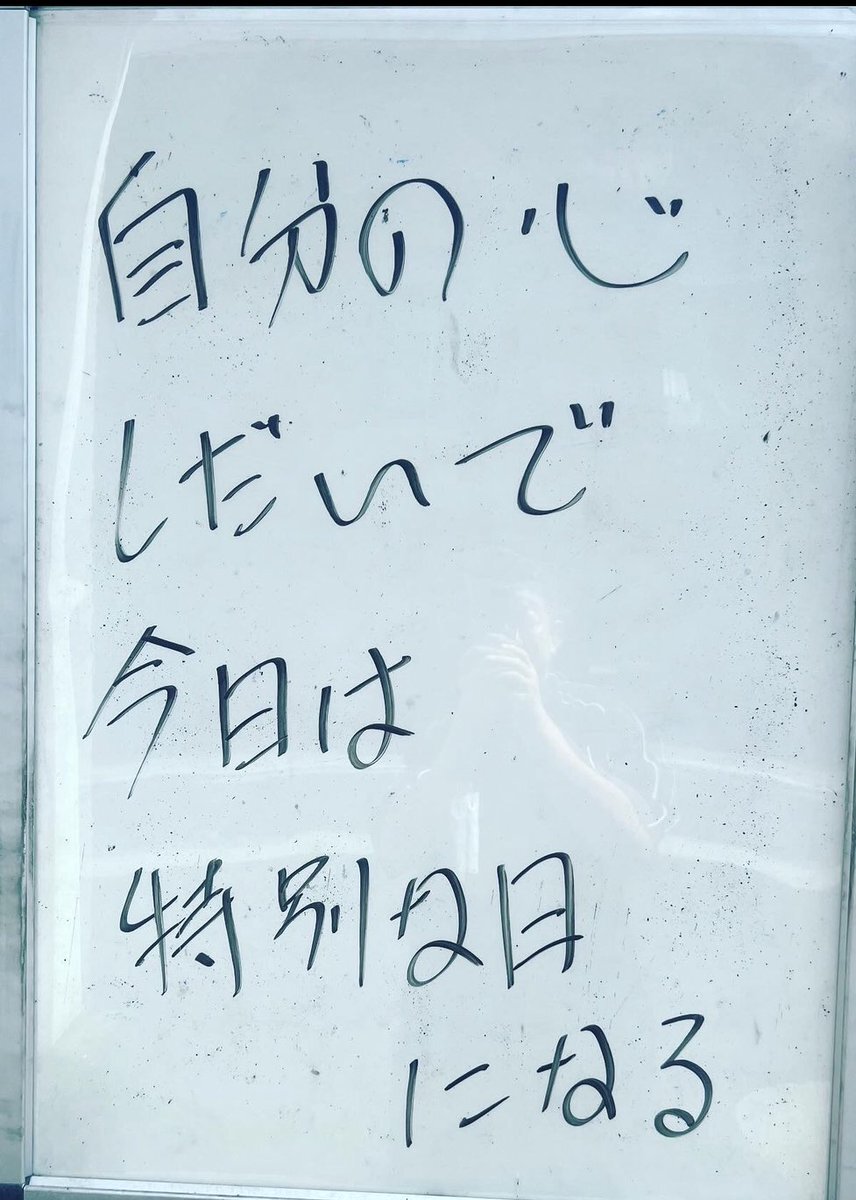 自分の心
しだいで
今日は
特別な日
になる